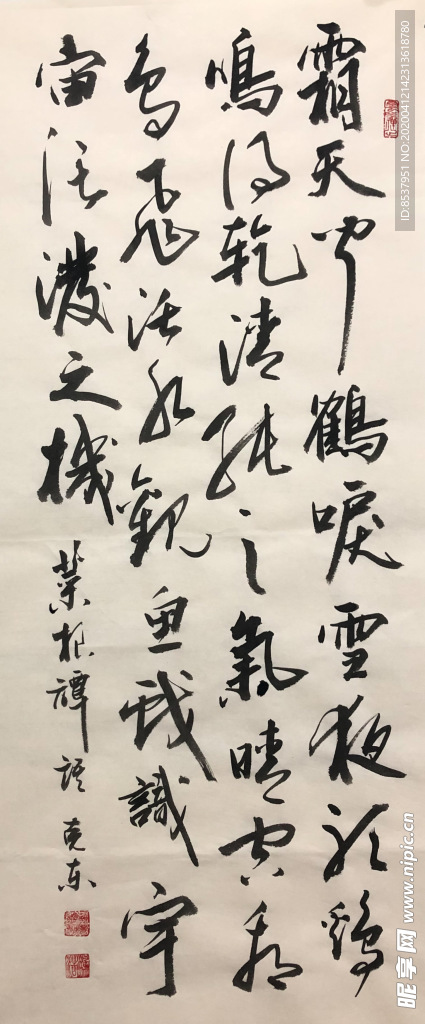 霜天聞鶴唳雪夜聽鷄
鳴得乾清純之氣晴空看
鳥飛活水觀魚戲識宇
宙活潑之機
菜根譚語 克東
ID:8537951 NO:20200412142313618780
昵享网 www.nipic.cn